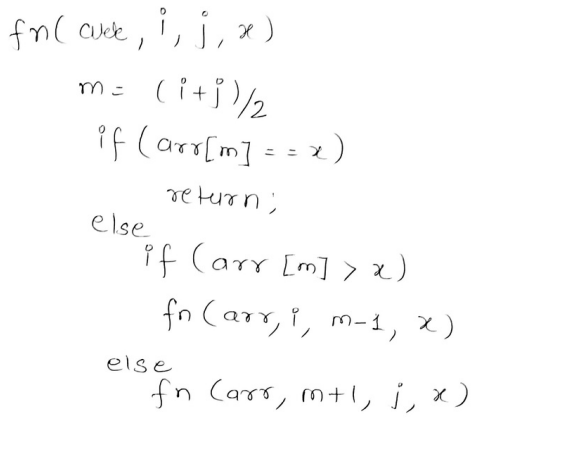 fn( arr, i, j, x)
m = (i+j)/2
if (arr[m] == x)
return;
else
if (arr [m] > x)
fn (arr, i, m-1, x)
else
fn (arr, m+1, j, x)